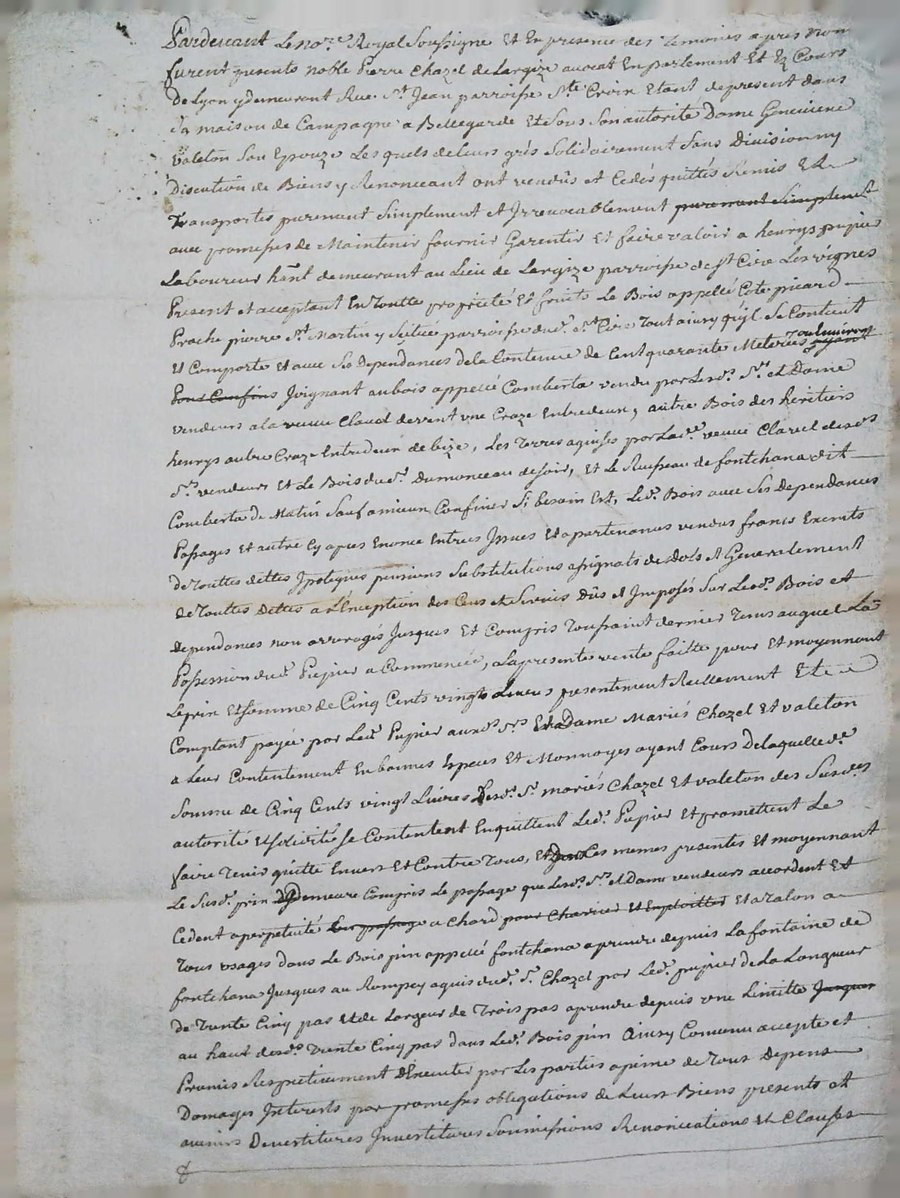 Pardevant Le no.re Royal Soussigne Et En presence des Temoins apres nom
furent presents noble Pierre Chazel de Largize avocat En parlement Et Es Cours
De Lyon y demeurant Rue St. Jean parroisse Ste Croix Etant de present dans
Sa maison de Campagne a Bellegarde Et Sous Son autorite Dame Genevieve
valeton Son Epouze Lesquels de leurs grés Solidairement Sans Division ny
Discution de Biens y Renonceant ont vendus et Cedés quittés Remis Et
Transportés purement Simplement et Irrevocablement purement Simplement
avec promesses de Maintenir fournir Garentir Et faire valoir a henrys pupier
Laboureur hant demeurant au Lieu de Largize parroisse de st Cire Les vignes
Present et acceptant En Toutte propriété Et fruits Le Bois appellé Cote picard
Proche pierre St. Martin y Situé parroisse dud. St Cire Tout ainsy qu'il Se Contient
Et Comporte Et avec Ses dependances de la Contenue de Cent quarante Meterées
Sous Confins Joignant au bois appellé Comberta vendu par Lesd. Srs. et Dame
vendeurs a la veuve Claud devent une Craze Entredeux, autre Bois des heritiers
henrys autre Craze Entredeux de bize, Les Terres aquises par Lad. veuve Clarel desds
Srs. vendeurs Et Le Bois dud. Dumonceau de soir, Et Le Ruisseau de fontchana dit
Comberta de Matin Sauf a mieux Confiner Si besoin Est, Led. Bois avec Ses dependances
Passages Et autre Cy apres Enonce Entrées Issues Et apartenances vendus francs Exempts
de Touttes dettes Ipoteques pensions Substitutions asignats de dots Et Generalement
de Touttes Dettes a L'Exception des Cens et Servis Dûs et Imposés Sur Lesd. Bois et
dependances non arreragés Jusques Et Compris Toussaint dernier Tems auquel La
Possession dud. Pupier a Commencée, a La presente vente faitte pour Et moyennant
Le prix Et Somme de Cinq Cents vingt Livres presentement Reellement Et
Comptant payée par Led. Pupier auxd. Srs Et Dame Mariés Chazel Et valeton
a Leur Contentement En bonnes Especes Et Monnoyes ayant Cours De laquelle de
Somme de Cinq Cents vingt Livres Lesd. Sr. mariés Chazel Et valeton des Susdes
autorité Et solidité Se Contentent En quittent Led. Pupier Et promettent Le
faire Tenir quitte Envers Et Contre Tous, Et Les memes presentes Et moyennant
Le Susd. prix Demeure Compris Le passage que Lesd. Sr. et Dame vendeurs accordent Et
Cedent a perpetuité Leur passage a Chard pour Charrier Et Exploitter Et a Talon a
Tous usages dans Le Bois pin appellé fontchana a prendre depuis La fontaine de
fontchana Jusques au Rompey aquis dud. Sr. Chazel par Led. pupier de La Longueur
De Trente Cinq pas Et de Largeur de Trois pas a prendre depuis une Limitte Jusques
au haut desds. Trente Cinq pas dans Led. Bois pin Ainsy Convenu accepté Et
Promis Respectivement d'Executer par Les parties a peine de Tous Depens
Domages Interests par promesses obligations de Leurs Biens presents et
avenirs Devestitures Investitures Soumissions Renonciations Et Clauses
&